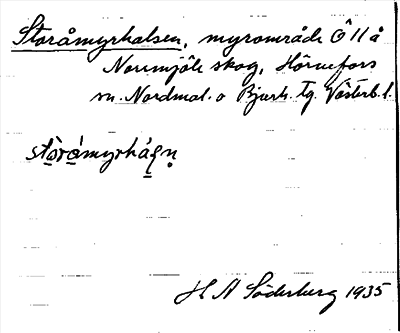 Storåmyrhalsen, myrområde Ö 11 å
Norrmjöle skog, Hörnefors
sn. Nordmal. o Bjurh. tg. Västerb. l.
stòrámyrhálsn̥
H A Söderberg 1935